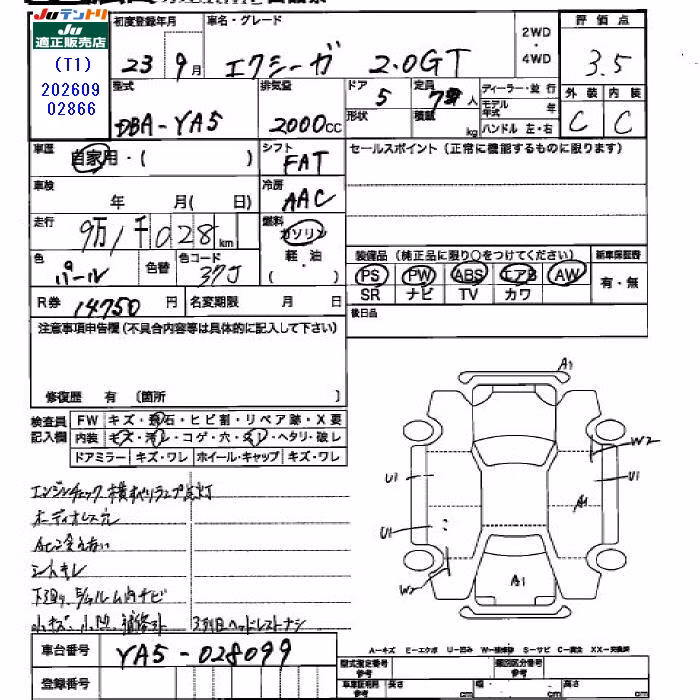 Juテントリ
Ju
適正販売店
(T1)
202609
02866
初度登録年月
23 9月
車名・グレード
エクシーガ 2.0GT
2WD
・
4WD
評価点
3.5
型式
DBA-YA5
排気量
2000cc
ドア 5
形状
定員 7人
積載 kg
ディーラー・並行
モデル年式 年
ハンドル 左・右
外装 内装
C C
車歴
自家用・( )
シフト
FAT
セールスポイント(正常に機能するものに限ります)
車検
年 月( 日)
冷房
AAC
走行
9万1千028km
燃料
ガソリン
軽・油
( )
色
パール
色替
色コード
37J
装備品(純正品に限り○をつけてください)
新車保証書
PS PW ABS エアB AW
有・無
SR ナビ TV カワ
R券 14750円
名変期限 月 日
後日品
注意事項申告欄(不具合内容等は具体的に記入して下さい)
修復歴 有 〔箇所 〕
検査員
記入欄
FW キズ・飛石・ヒビ割・リペア跡・X要
内装 キズ・汚レ・コゲ・穴・スレ・ヘタリ・破レ
ドアミラー キズ・ワレ ホイール・キャップ キズ・ワレ
エンジンチェック 横すべりランプ点灯
オーディオレス穴
シートキレ
小キズ、小凹、補修歩
3列目ヘッドレストナシ
A1
W2
U1
U1
A1
U1
W2
A1
車台番号
YA5-028099
登録番号
A－キズ E－エクボ U－凹み W－補修跡 S－サビ C－腐食 XX－交換済
型式指定番号
参考
類別区分番号
参考
車車証明用
参考
長さ cm
幅 cm
高さ cm